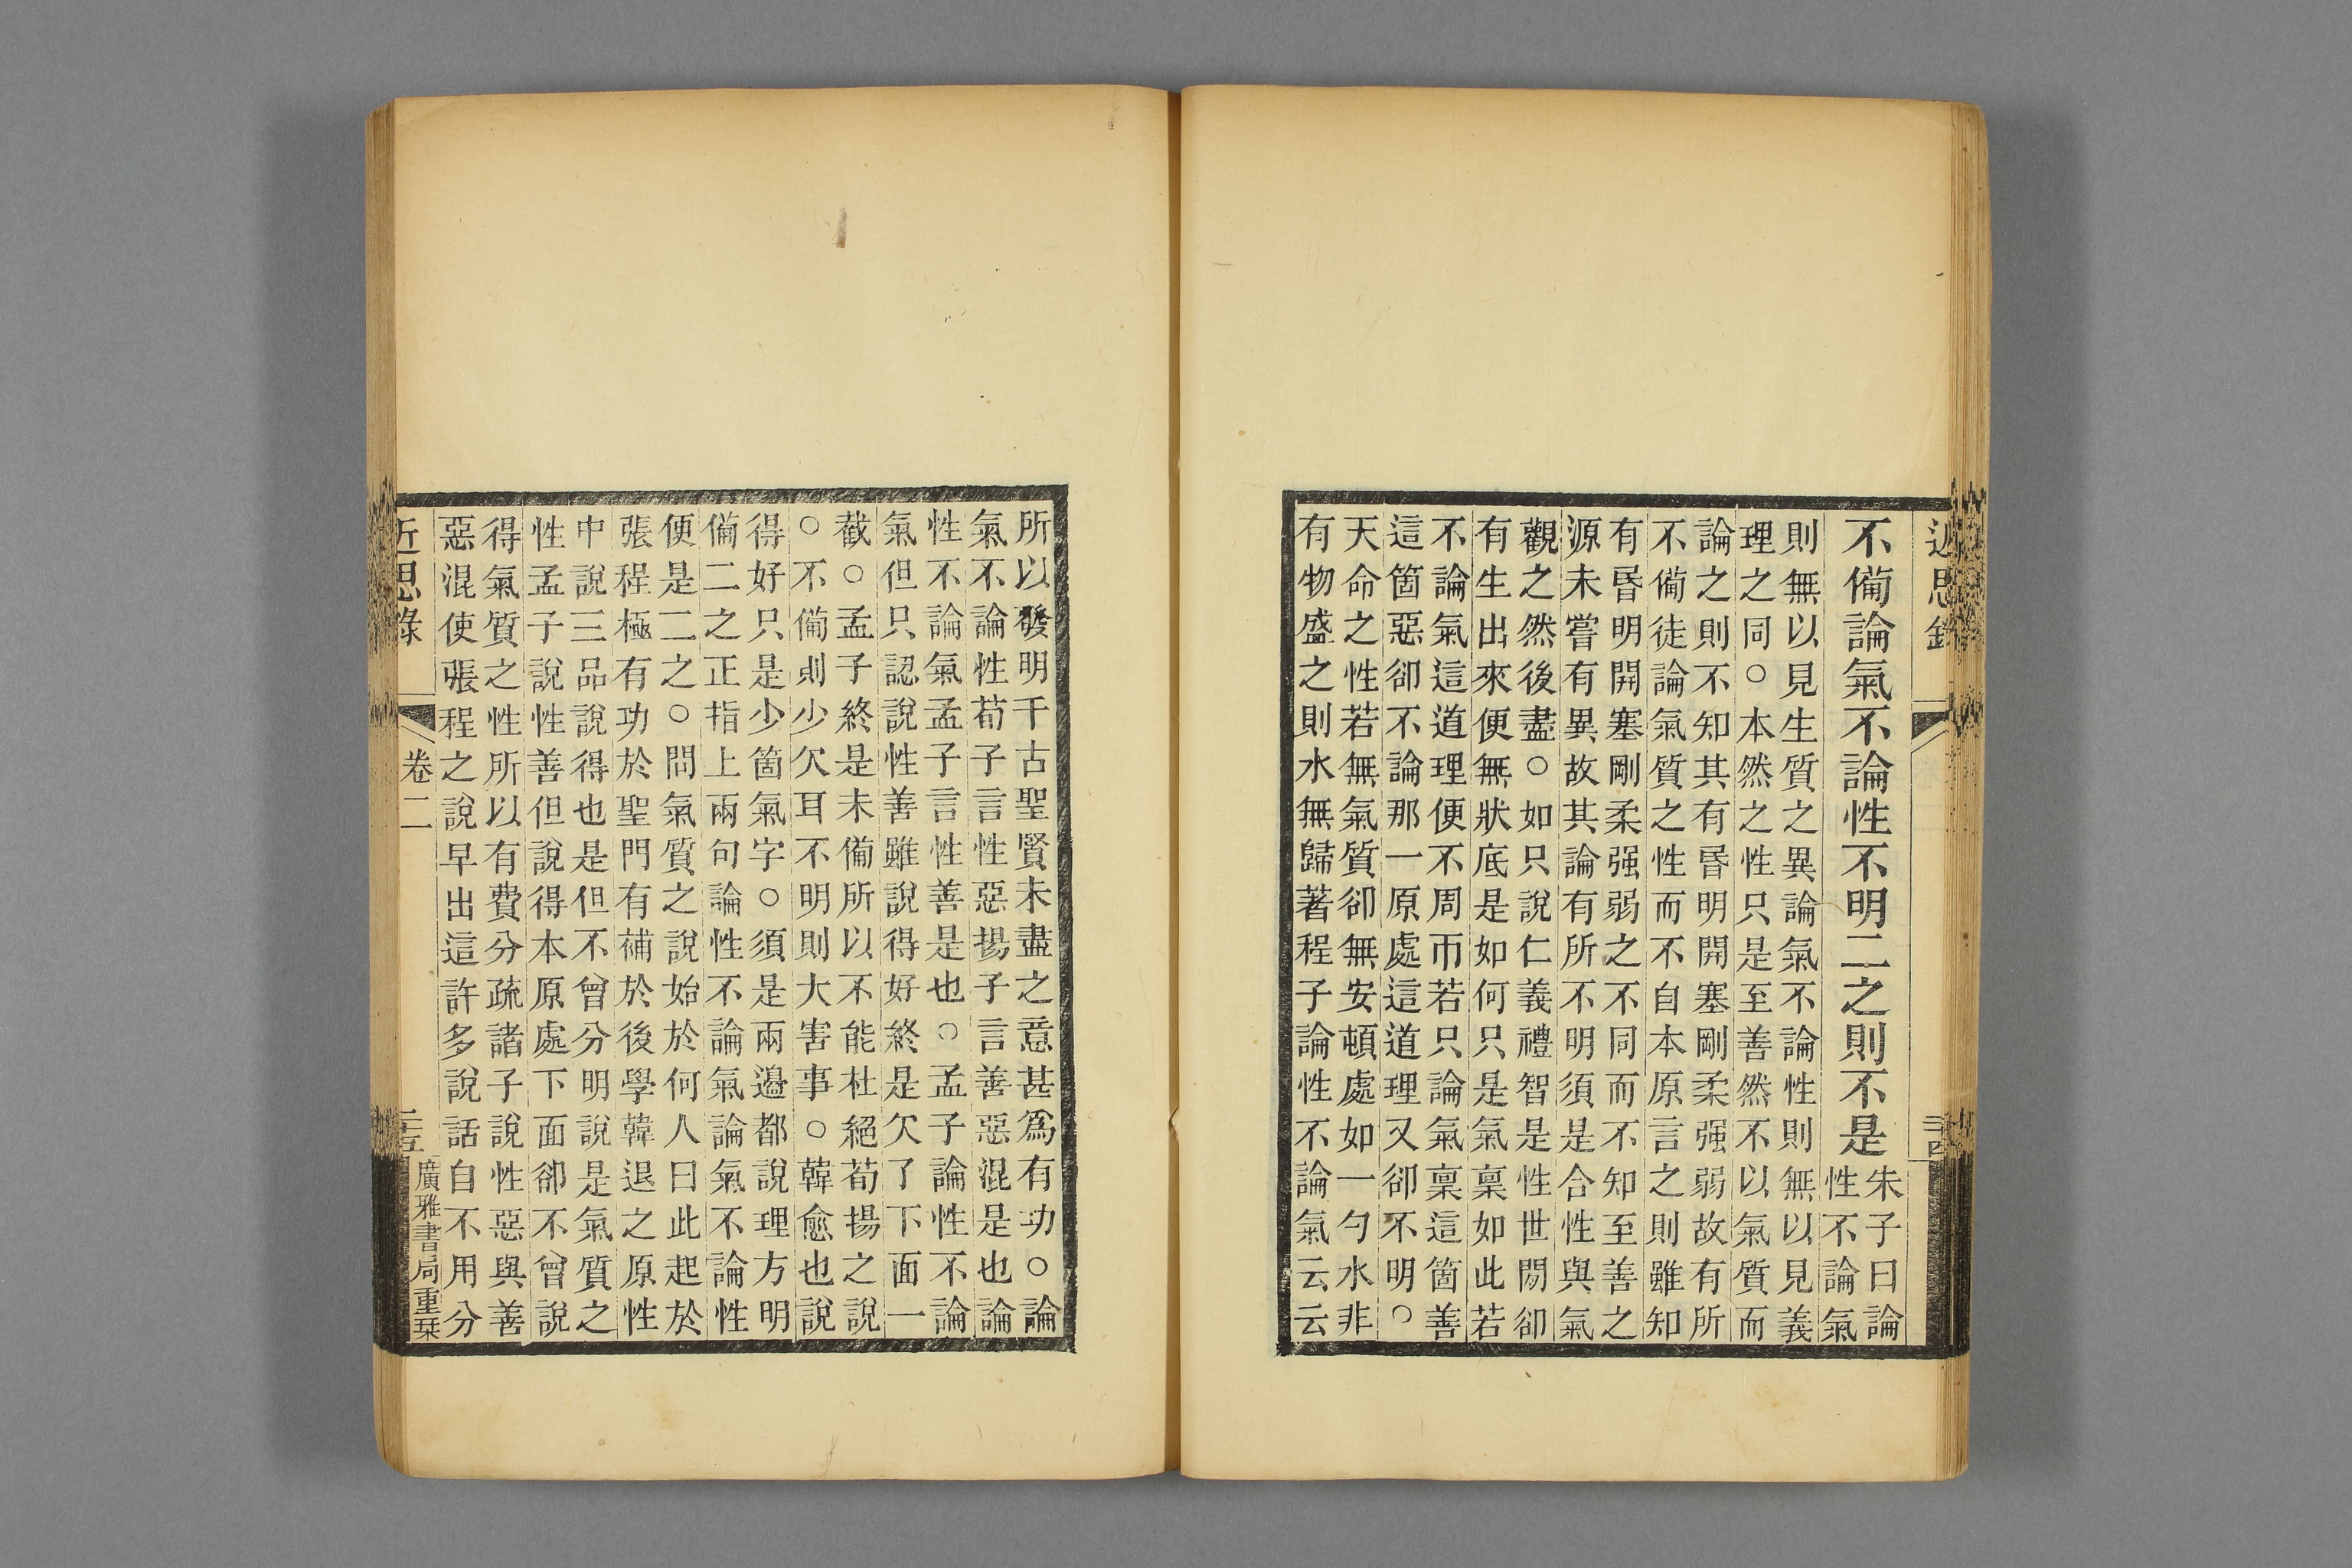 近思錄
不備論氣不論性不明二之則不是
朱子曰論
性不論氣
則無以見生質之異論氣不論性則無以見義
理之同○本然之性只是至善然不以氣質而
論之則不知其有昬明開塞剛柔强弱故有所
不備徒論氣質之性而不自本原言之則雖知
有昬明開塞剛柔强弱之不同而不知至善之
源未嘗有異故其論有所不明須是合性與氣
觀之然後盡○如只說仁義禮智是性世閒卻
有生出來便無狀底是如何只是氣稟如此若
不論氣這道理便不周帀若只論氣稟這箇善
這箇惡卻不論那一原處這道理又卻不明○
天命之性若無氣質卻無安頓處如一勺水非
有物盛之則水無歸著程子論性不論氣云云
所以發明千古聖賢未盡之意甚爲有功○論
氣不論性荀子言性惡揚子言善惡混是也論
性不論氣孟子言性善是也○孟子論性不論
氣但只認說性善雖說得好終是欠了下面一
截○孟子終是未備所以不能杜絕荀揚之說
○不備則少欠耳不明則大害事○韓愈也說
得好只是少箇氣字○須是兩邊都說理方明
備二之正指上兩句論性不論氣論氣不論性
便是二之○問氣質之說始於何人曰此起於
張程極有功於聖門有補於後學韓退之原性
中說三品說得也是但不曾分明說是氣質之
性孟子說性善但說得本原處下面卻不曾說
得氣質之性所以有費分疏諸子說性惡與善
惡混使張程之說早出這許多說話自不用分
近思錄
卷二
廣雅書局重栞